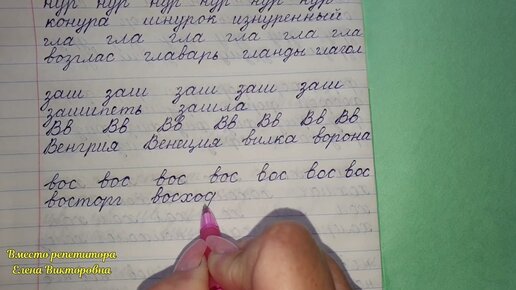 нур нур нур нур нур нур
конура шнурок изнуренный
гла гла гла гла гла гла
возглас главарь гланды глагол
заш заш заш заш заш
зашипеть зашла
Вв Вв Вв Вв Вв Вв Вв
Венгрия Венеция вилка ворона
вос вос вос вос вос вос вос
восторг восход
Вместо репетитора
Елена Викторовна